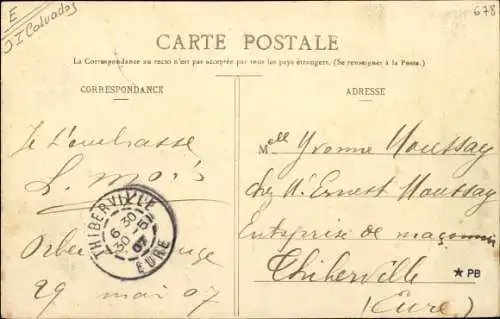 E
J I Calvados
678
CARTE POSTALE
La Correspondance au recto n'est pas acceptée par tous les pays étrangers. (Se renseigner à la Poste.)
CORRESPONDANCE
ADRESSE
Je t'embrasse
L.
THIBERVILLE
6 30
30 -5
07
EURE
Orbec
29 mai 07
Melle Yvonne Houssay
chez M. Ernest Houssay
Entreprise de maçonnerie
Thiberville
(Eure)
★ PB